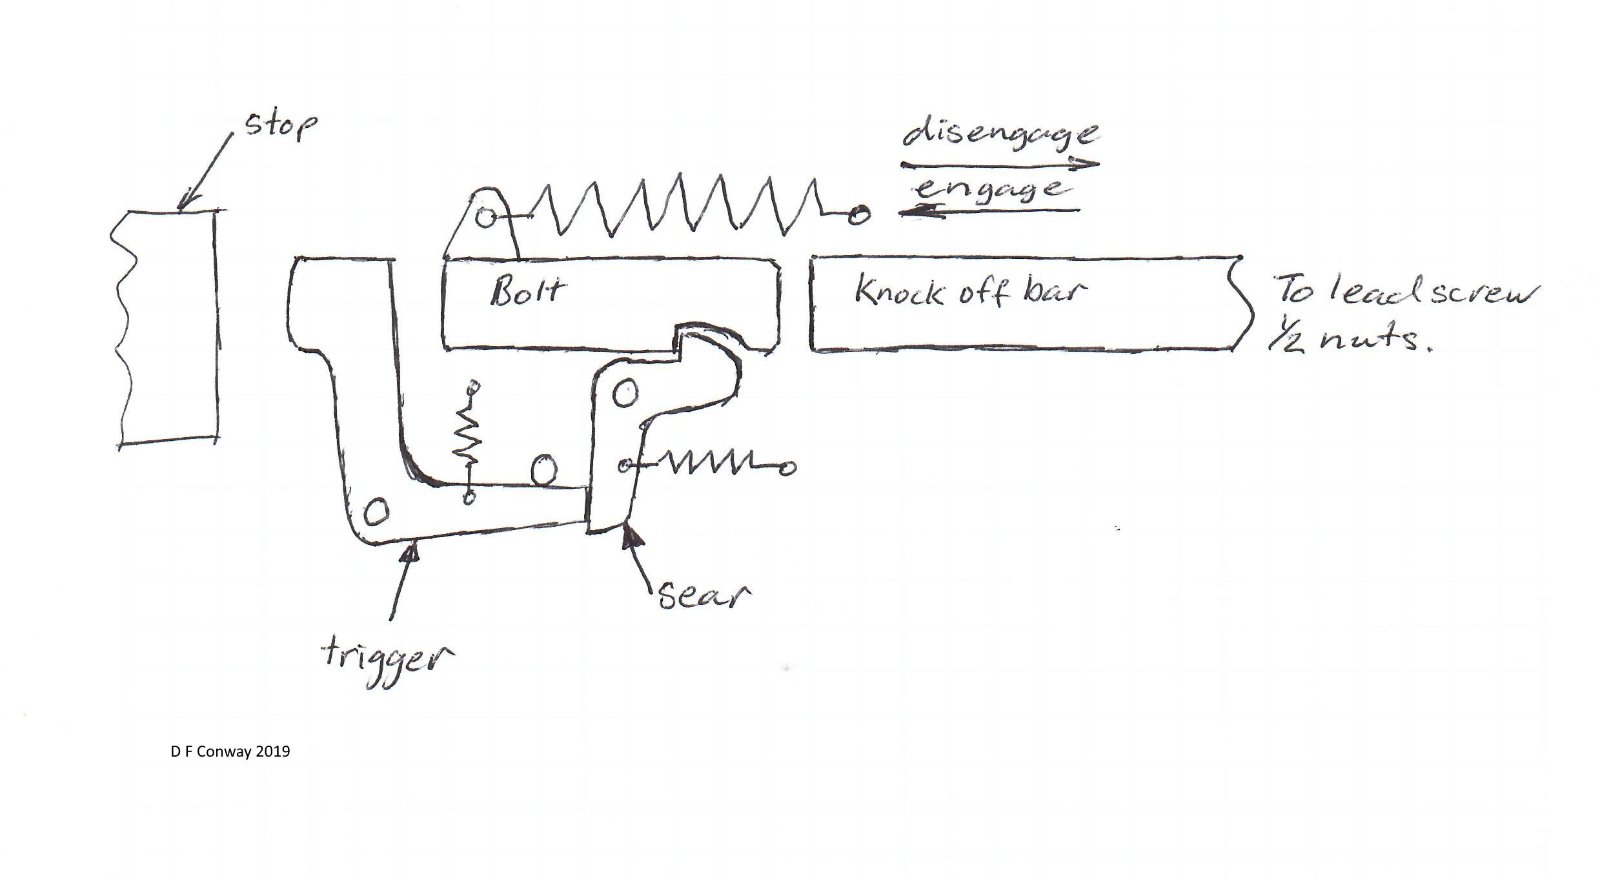 stop
disengage
engage
Bolt
Knock off bar
To leadscrew
1/2 nuts.
sear
trigger
D F Conway 2019